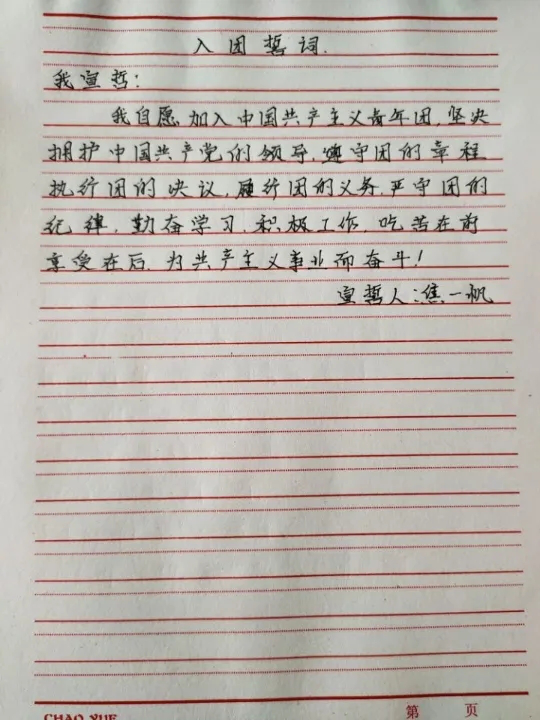 入团誓词.
我宣誓:
我自愿加入中国共产主义青年团,坚决
拥护中国共产党的领导,遵守团的章程
执行团的决议,履行团的义务,严守团的
纪律,勤奋学习,积极工作,吃苦在前
享受在后,为共产主义事业而奋斗!
宣誓人:焦一帆
CHAO YUE
第 页